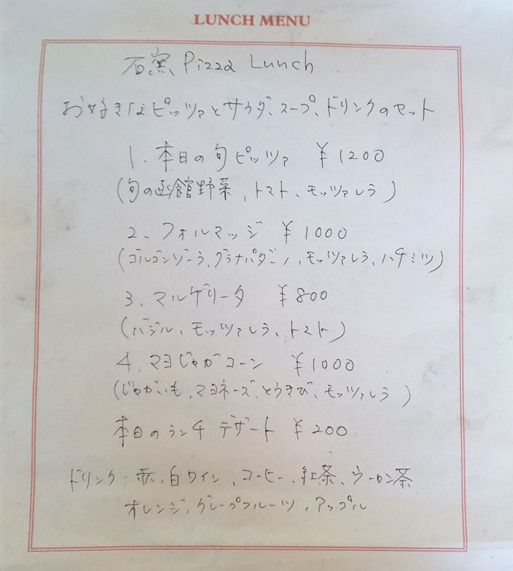 LUNCH MENU
石窯 Pizza Lunch
お好きなピッツァとサラダ、スープ、ドリンクのセット
1、本日の旬ピッツァ ¥1200
(旬の函館野菜、トマト、モッツァレラ)
2、フォルマッジ ¥1000
(ゴルゴンゾーラ、グラナパダーノ、モッツァレラ、ハチミツ)
3、マルゲリータ ¥800
(バジル、モッツァレラ、トマト)
4、マヨじゃがコーン ¥1000
(じゃがいも、マヨネーズ、とうきび、モッツァレラ)
本日のランチデザート ¥200
ドリンク:赤、白ワイン、コーヒー、紅茶、ウーロン茶
オレンジ、グレープフルーツ、アップル